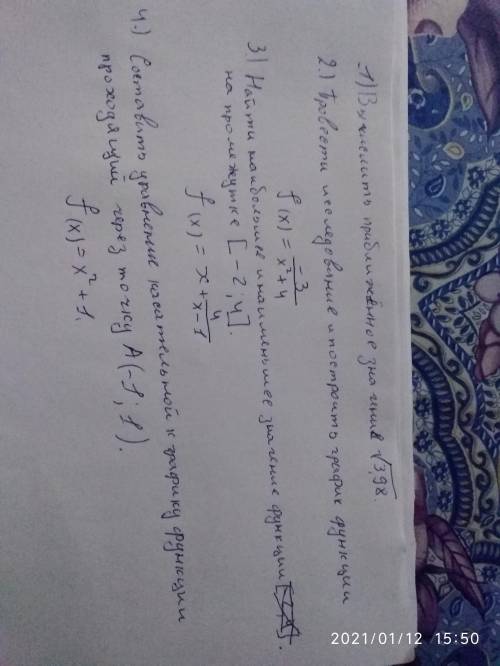 1) Вычислить приближённое значение √3,98.
2.) Провести исследование и построить график функции
f(x) = -3 / x²+4
3) Найти наибольшее и наименьшее значение функции
на промежутке [-2; 4].
f(x) = x + 4 / x-1
4.) Составить уравнение касательной к графику функции
проходящей через точку A(-1; 1).
f(x) = x² + 1.
2021/01/12 15:50